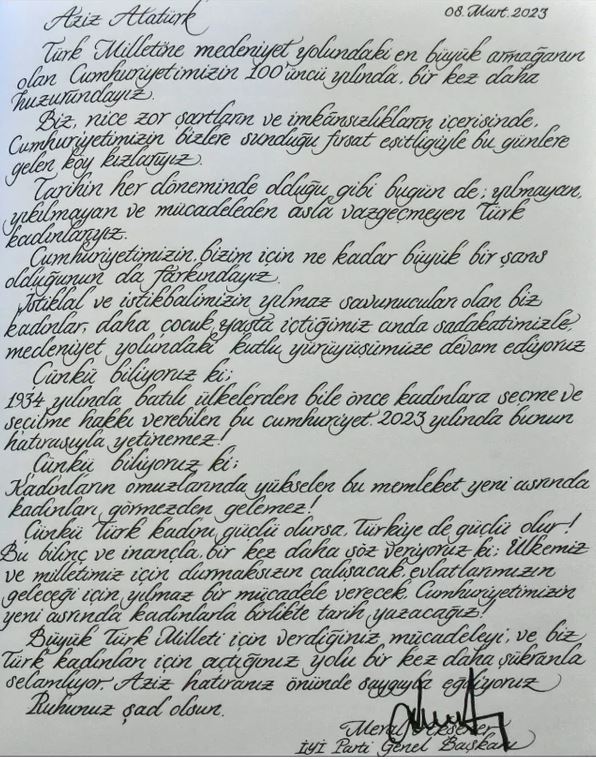 Aziz Atatürk
08. Mart. 2023
Türk Milletine medeniyet yolundaki en büyük armağanın
olan Cumhuriyetimizin 100'üncü yılında, bir kez daha
huzurundayız.
Biz, nice zor şartların ve imkânsızlıkların içerisinde,
Cumhuriyetimizin bizlere sunduğu fırsat eşitliğiyle bu günlere
gelen köy kızlarıyız.
Tarihin her döneminde olduğu gibi bugün de; yılmayan,
yıkılmayan ve mücadeleden asla vazgeçmeyen Türk
kadınlarıyız.
Cumhuriyetimizin, bizim için ne kadar büyük bir şans
olduğunun da farkındayız.
İstiklal ve istikbalimizin yılmaz savunucuları olan biz
kadınlar, daha çocuk yaşta içtiğimiz anda sadakatimizle,
medeniyet yolundaki kutlu yürüyüşümüze devam ediyoruz
Çünkü biliyoruz ki;
1934 yılında batılı ülkelerden bile önce kadınlara seçme ve
seçilme hakkı verebilen bu cumhuriyet, 2023 yılında bunun
hatırasıyla yetinemez!
Çünkü biliyoruz ki;
Kadınların omuzlarında yükselen bu memleket yeni asrında
kadınları görmezden gelemez!
Çünkü Türk kadını güçlü olursa, Türkiye de güçlü olur!
Bu bilinç ve inançla, bir kez daha söz veriyoruz ki; Ülkemiz
ve milletimiz için durmaksızın çalışacak, evlatlarımızın
geleceği için yılmaz bir mücadele verecek, Cumhuriyetimizin
yeni asrında kadınlarla birlikte tarih yazacağız!
Büyük Türk Milleti için verdiğiniz mücadeleyi, ve biz
Türk kadınları için açtığınız yolu bir kez daha şükranla
selamlıyor, Aziz hatıranız önünde saygıyla eğiliyoruz
Ruhunuz şad olsun.
Meral Akşener
İYİ Parti Genel Başkanı